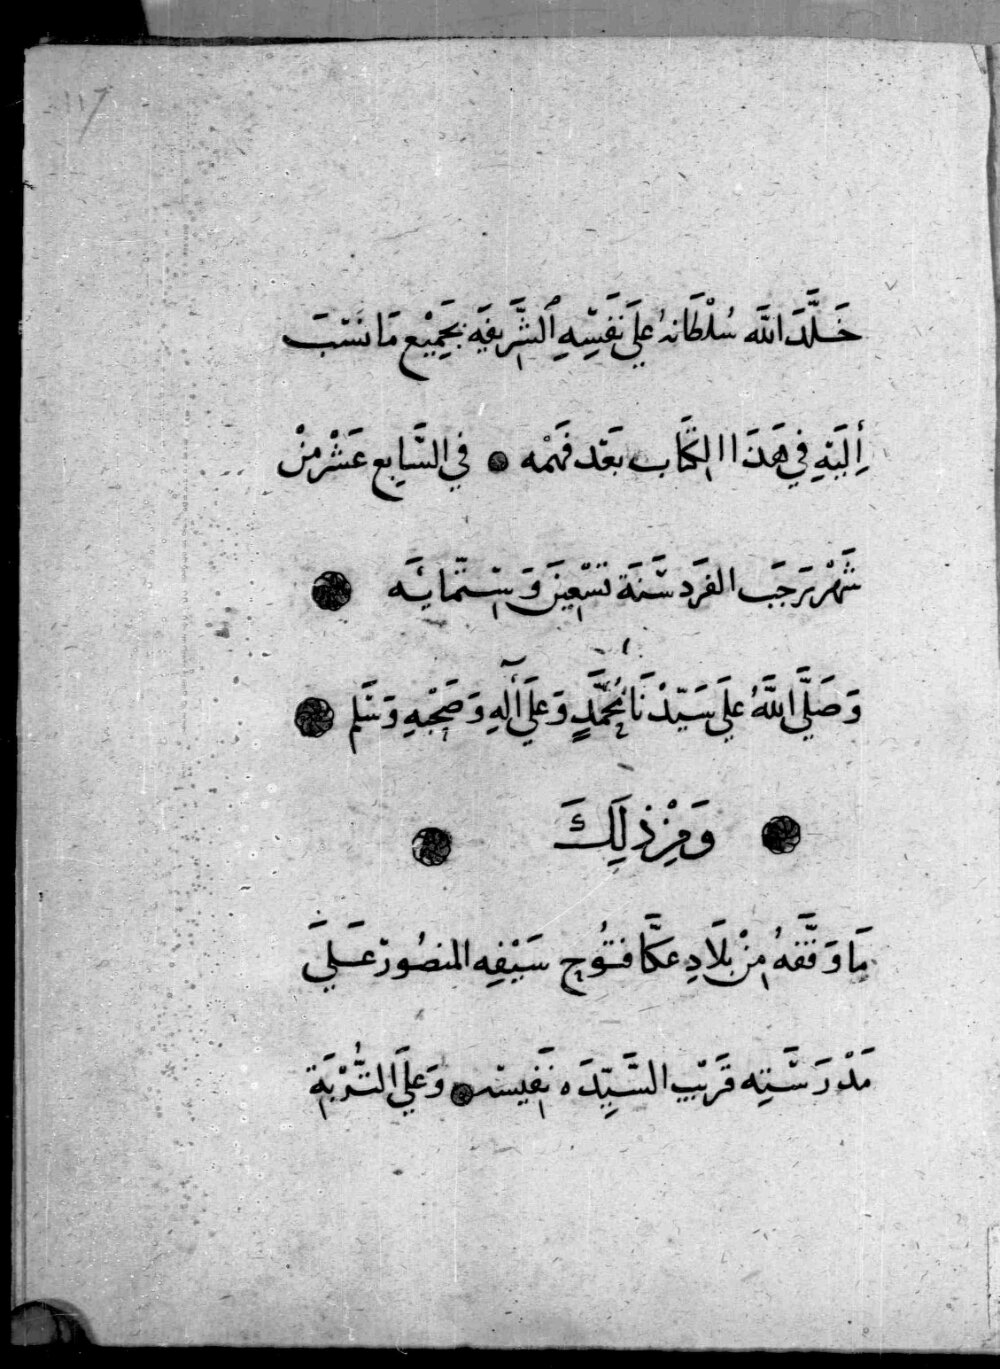 ١١٧
خَلَّدَ الله سُلْطَانهُ عَلَى نَفَسِّهِ ٱلشَّرِيفَه بجَمِيْع مَا نسَبَ
أِليَهِ فِي هَذَا الكتَاب بعَد فَهْمه في السَّابع عَشْر مِنْ
شَهْر رَجَب الفَرد سَنَة تسْعِينَ وَستمايَه
وَصَلَّى اللَّهُ عَلَى سَيّدْنَا مُحَمَّدٍ وَعَلَى أَلِهِ وَصَحْبِهِ وَسَلم
وَمِنْ ذلِكَ
مَا وَقَّفهُ مِنْ بلَادِ عكَّا فتُوح سَيْفِه المنصُور عَلَى
مَدْرَسَتِه قَرَيْب السَّيِّدَه نَفيسَه وَعَلَى التُّرْبَة